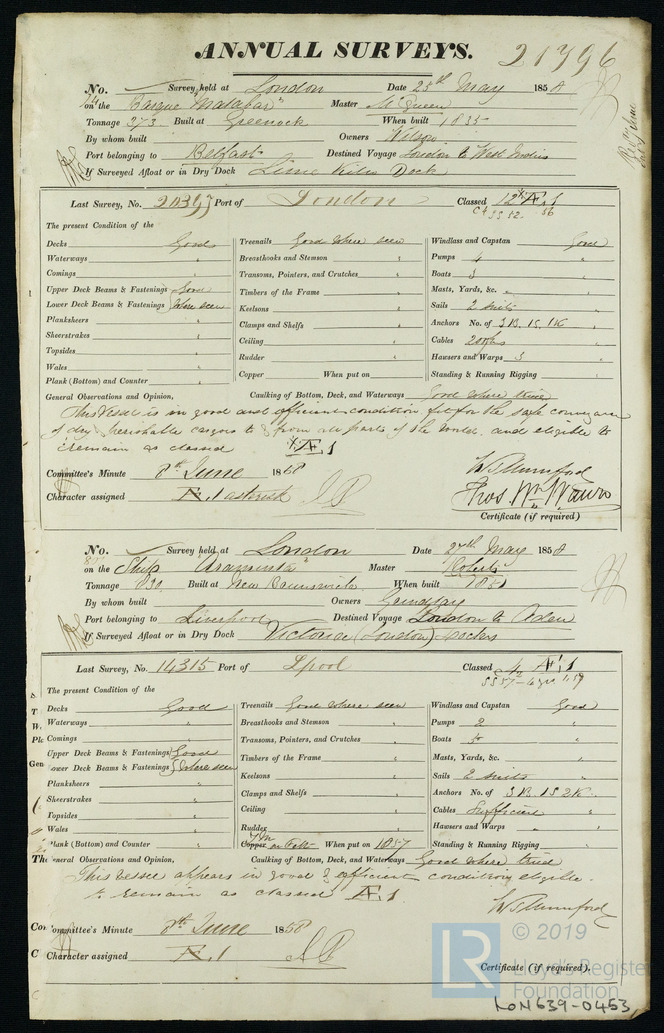 ANNUAL SURVEYS.
21796
No. Survey held at London Date 25th May 1858
on the Barque "Malabar" Master McQueen
Tonnage 373 Built at Greenock When built 1835
By whom built Owners Wilson
Port belonging to Belfast Destined Voyage London to West Indies
If Surveyed Afloat or in Dry Dock Lime Kiln Dock
Last Survey, No. Port of London Classed 12 Æ 1
SS 52. 56
The present Condition of the
Decks Good Treenails Good where seen Windlass and Capstan Good
Waterways " Breasthooks and Stemson " Pumps 4 "
Comings " Transoms, Pointers, and Crutches " Boats 3 "
Upper Deck Beams & Fastenings Good Timbers of the Frame " Masts, Yards, &c. "
Lower Deck Beams & Fastenings where seen Keelsons " Sails 2 suits "
Planksheers " Clamps and Shelfs " Anchors No. of 3B. 1S. 1K "
Sheerstrakes " Ceiling " Cables "
Topsides " Rudder " Hawsers and Warps 3 "
Wales " Copper When put on Standing & Running Rigging "
Plank (Bottom) and Counter "
General Observations and Opinion, Caulking of Bottom, Deck, and Waterways Good where tried
This Vessel is in good and efficient condition fit for the safe conveyance
of dry & perishable cargoes to & from all parts of the World. and eligible to
remain as classed *Æ 1
Committee's Minute 8th June 1858 W. S. Mumford
Character assigned Æ. 1 asterisk
Certificate (if required)
No. Survey held at London Date 27th May 1858
on the Ship "Araminta" Master Roberts
Tonnage 830 Built at New Brunswick When built
By whom built Owners Grindlay
Port belonging to Liverpool Destined Voyage London to Aden
If Surveyed Afloat or in Dry Dock Victoria (London) Docks
Last Survey, No. 14315 Port of Lpool Classed Æ 1
The present Condition of the
Decks Good Treenails Good where seen Windlass and Capstan Good
Waterways " Breasthooks and Stemson " Pumps 2 "
Comings " Transoms, Pointers, and Crutches " Boats 5 "
Upper Deck Beams & Fastenings Good Timbers of the Frame " Masts, Yards, &c. "
Lower Deck Beams & Fastenings where seen Keelsons " Sails 2 suits "
Planksheers " Clamps and Shelfs " Anchors No. of 3B. 1S 2K. "
Sheerstrakes " Ceiling " Cables Sufficient "
Topsides " Rudder " Hawsers and Warps " "
Wales " Copper YM on Felt When put on 1857 Standing & Running Rigging "
Plank (Bottom) and Counter "
General Observations and Opinion, Caulking of Bottom, Deck, and Waterways Good where tried
This vessel appears in good & efficient condition eligible
to remain as classed Æ 1
W. S. Mumford
Committee's Minute 8th June 1858
Character assigned Æ. 1
Certificate (if required).
LR © 2019
Lloyd's Register
Foundation
LON639-0453